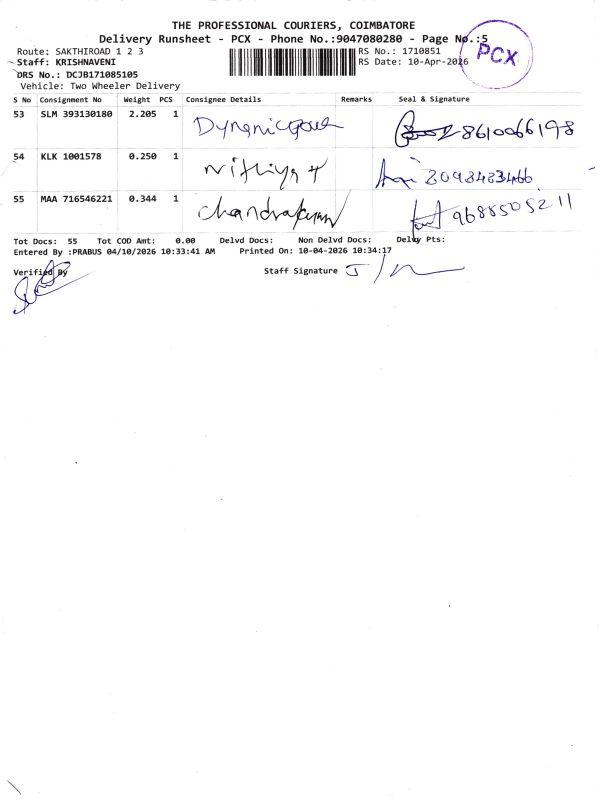 THE PROFESSIONAL COURIERS, COIMBATORE
Delivery Runsheet - PCX - Phone No.:9047080280 - Page No.:5
Route: SAKTHIROAD 1 2 3 RS No.: 1710851
Staff: KRISHNAVENI RS Date: 10-Apr-2026
DRS No.: DCJB171085105
Vehicle: Two Wheeler Delivery
PCX
S No Consignment No Weight PCS Consignee Details Remarks Seal & Signature
53 SLM 393130180 2.205 1 8610066198
54 KLK 1001578 0.250 1 Nithiya
55 MAA 716546221 0.344 1 9688505211
Tot Docs: 55 Tot COD Amt: 0.00 Delvd Docs: Non Delvd Docs: Delvy Pts:
Entered By :PRABUS 04/10/2026 10:33:41 AM Printed On: 10-04-2026 10:34:17
Verified By Staff Signature